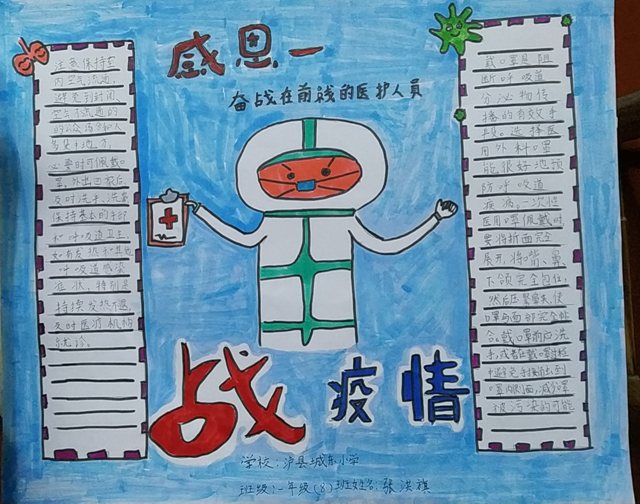 感恩一
奋战在前线的医护人员
注意保持室
内空气流通,
避免到封闭、
空气不流通的
的公众场合和人
多集中地方,
必要时可佩戴口
罩,外出回后,
及时洗手,洗鼻
保持基本的手部
和呼吸道卫生
如有发热和其他
呼吸道感染
症状,特别是
持续发热不退,
及时医疗机构
就诊。
戴口罩是阻
断呼吸道
分泌物传
播的有效手
段。选择医
用外科口罩
能很好地预
防呼吸道
疾病,一次性
医用口罩佩戴时
要将折面完全
展开,将嘴、鼻、
下颌完全包住,
然后压紧鼻夹使
口罩与面部完全贴
合。戴口罩前应洗
手,或者在戴口罩过程
中避免手接触到
口罩内侧面,减少口罩
被污染的可能
战疫情
学校:泸县城东小学
班级:一年级(8)班姓名:张洪旗